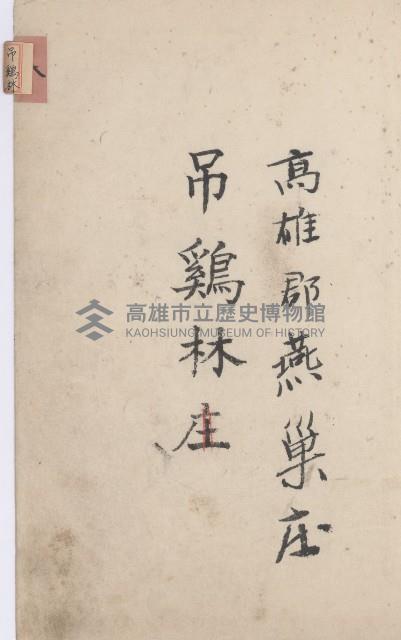 高雄郡燕巢庄
吊鷄林庄
吊鷄林
高雄市立歷史博物館
KAOHSIUNG MUSEUM OF HISTORY